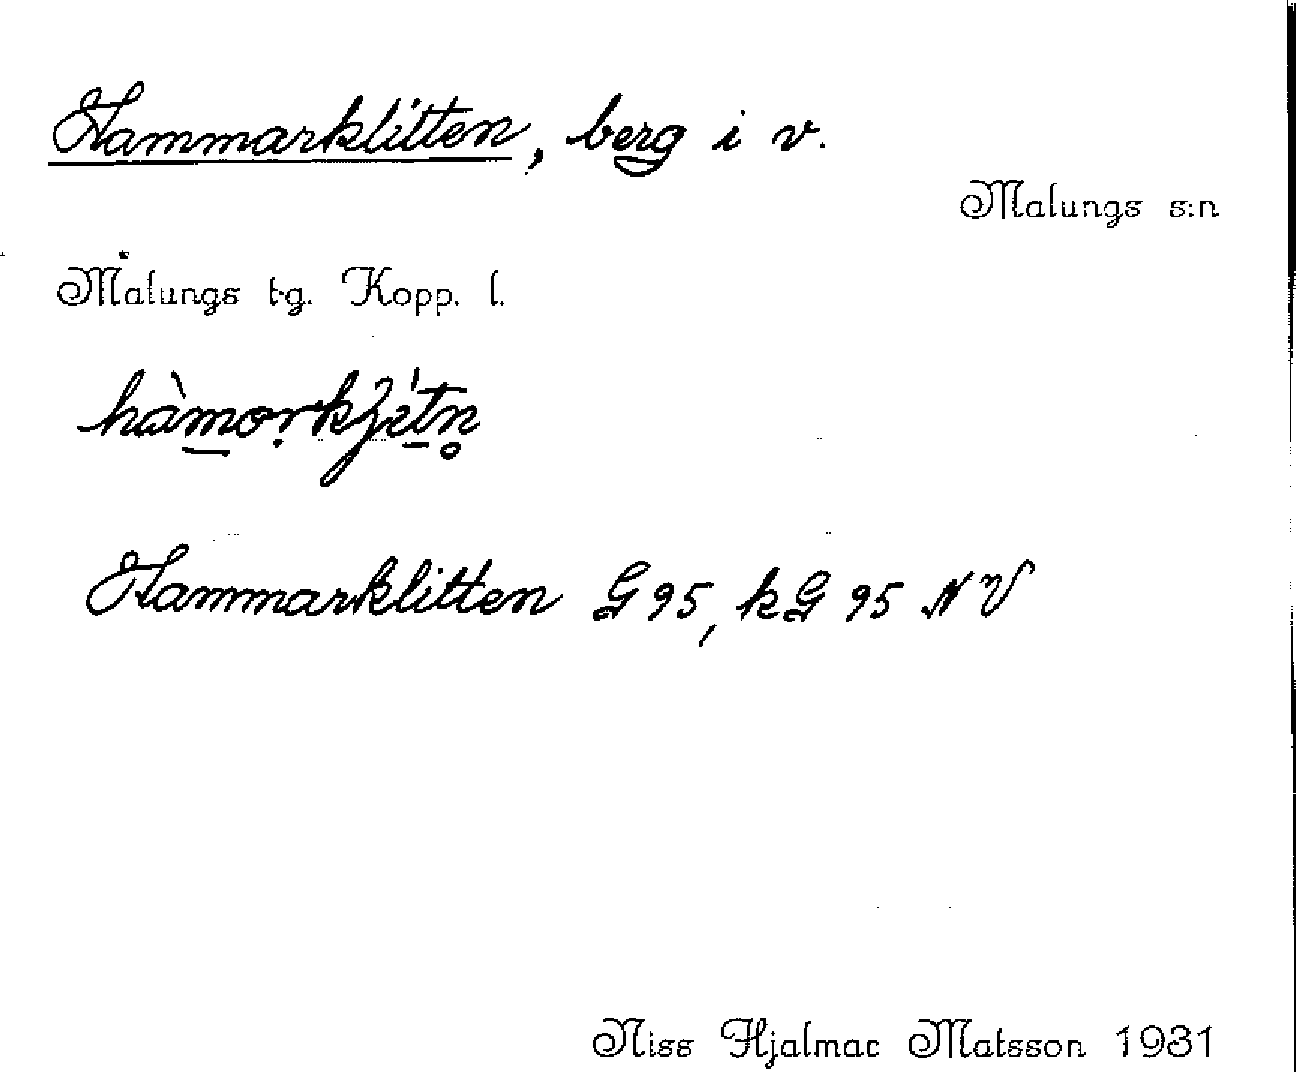 Hammarklitten, berg i v.
Malungs s:n
Malungs tg. Kopp. l.
Hammarklitten G 95, kG 95 NV
Niss Hjalmar Matsson 1931